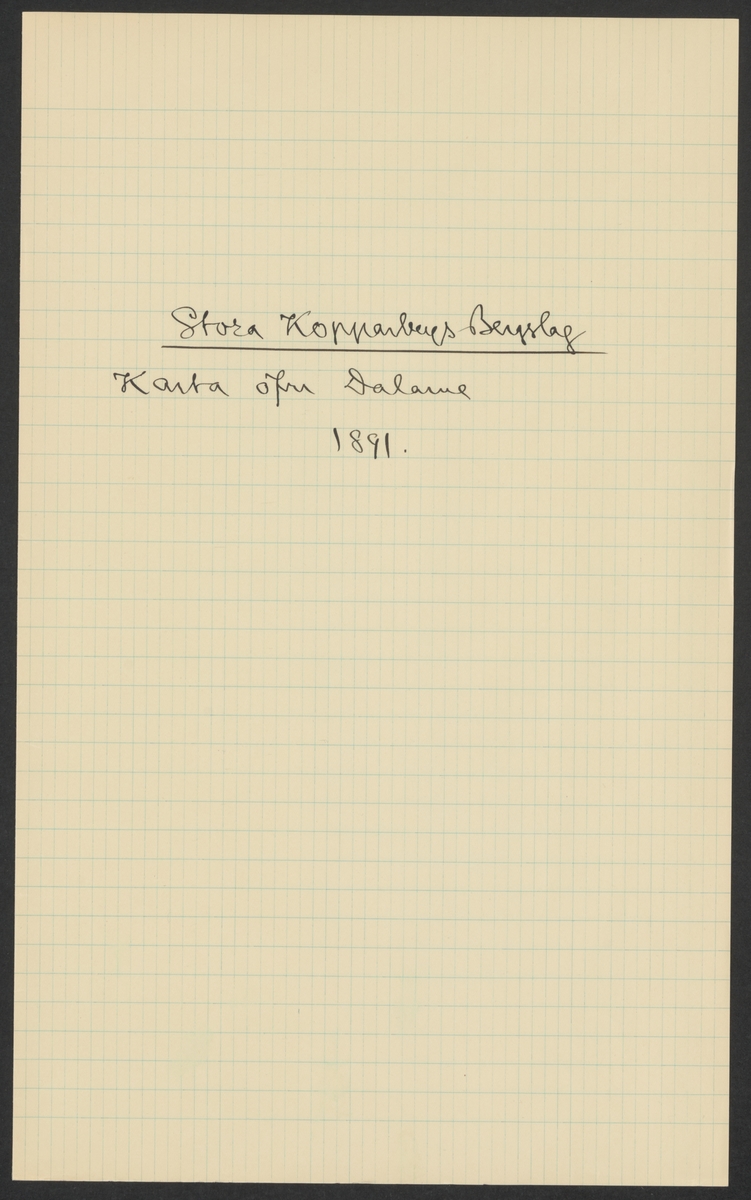 Stora Kopparbergs Bergslag
Karta öfver Dalarne
1891.